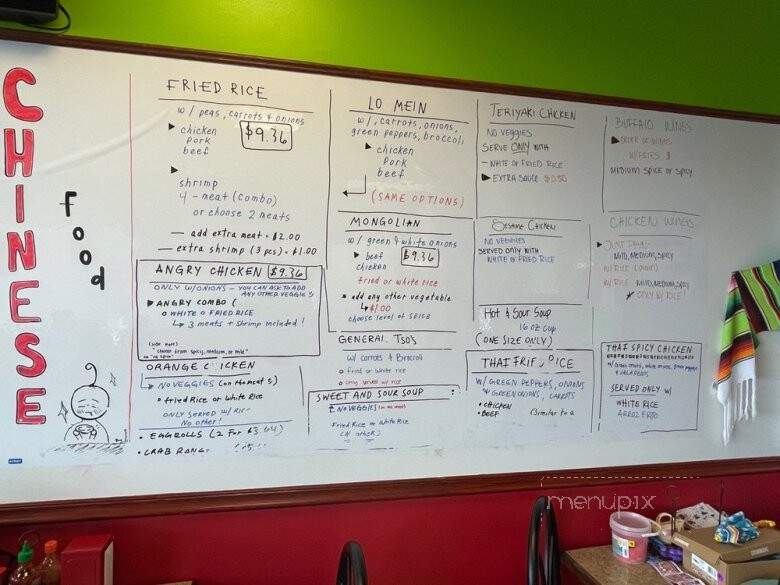 CHINESE
food
FRIED RICE
w/ peas, carrots & onions
chicken
pork
beef
$9.36
shrimp
4-meat (combo)
or choose 2 meats
— add extra meat = $2.00
— extra shrimp (3 pcs) = $1.00
ANGRY CHICKEN $9.36
ONLY W/ONIONS - YOU CAN ASK TO ADD
ANY OTHER VEGGIE'S
ANGRY COMBO (
WHITE O FRIED RICE
3 meats + Shrimp included!
(side note)
choose from spicy, medium, or mild
ORANGE CHICKEN
NO VEGGIES (on meat 5)
fried Rice or White Rice
ONLY SERVED w/ RICE
No other!
• EGGROLLS (2 For $3.64)
• CRAB RANG
LO MEIN
w/, carrots, onions,
green peppers, broccoli,
chicken
pork
beef
(SAME OPTIONS)
MONGOLIAN
w/ green & white onions
beef
chicken
$9.36
fried or white rice
add any other vegetable
$1.00
choose level of SPICE
GENERAL TSO'S
w/ carrots & Broccoli
fried or white rice
only served w/ rice
SWEET AND SOUR SOUP
NO VEGGIES
Fried Rice or White Rice
TERIYAKI CHICKEN
NO VEGGIES
SERVE ONLY WITH
- WHITE OR FRIED RICE
EXTRA SAUCE $0.50
Sesame Chicken
NO VEGGIES
SERVED ONLY WITH
WHITE OR FRIED RICE
Hot & Sour Soup
16 oz cup
(ONE SIZE ONLY)
THAI FRIED RICE
W/ GREEN PEPPERS, ONIONS
& GREEN ONIONS, CARROTS
• CHICKEN
• BEEF
(Similar to a
BUFFALO WINGS
ORDER OF WINGS
W/ FRIES
MEDIUM SPICE OR SPICY
CHICKEN WINGS
MILD, MEDIUM, SPICY
W/ RICE MILD, MEDIUM, SPICY
ONLY W/ RICE!
THAI SPICY CHICKEN
w/ Green onions, white onions, green peppers
& JALAPENOS
SERVED ONLY w/
WHITE RICE
ARROZ FRITO
menupix